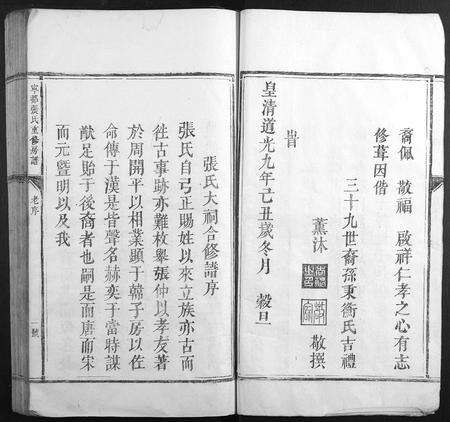 裔佩 敬福 啟祥仁孝之心有志
修葺因偕
三十九世裔孫秉衡氏吉禮
薰沐
敬撰
旹
皇清道光九年己丑歲冬月 穀旦
張氏大祠合修譜序
張氏自弓正賜姓以來立族亦古而
徃古事跡亦難枚舉張仲以孝友著
於周開平以相業顯于韓子房以佐
命傳于漢是皆聲名赫奕于當時謀
猷足貽于後裔者也嗣是而唐而宋
而元暨明以及我
寧都張氏重修房譜
老序
一號